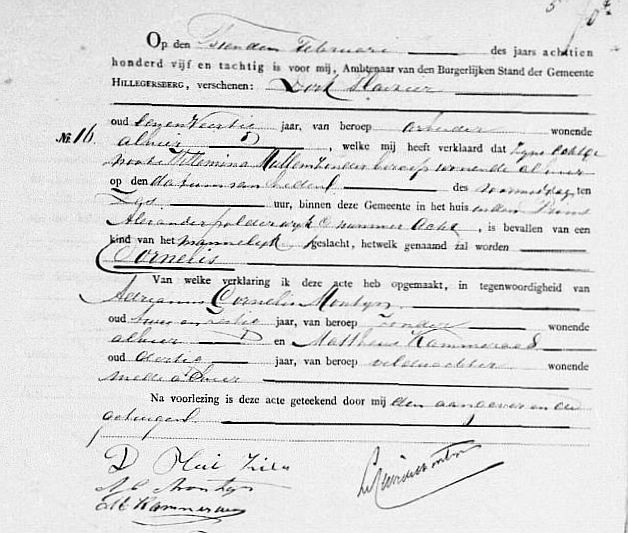 Op den Tienden Februari des jaars achttien
honderd vijf en tachtig is voor mij, Ambtenaar van den Burgerlijken Stand der Gemeente
HILLEGERSBERG, verschenen: Dirk
No. 16 oud Zeven Veertig jaar, van beroep arbeider wonende
alhier, welke mij heeft verklaard dat Zijne Echtge
noote Willemina zonder beroep wonende alhier
op den datum van heden des voormiddags ten
uur, binnen deze Gemeente in het huis in den Prins
Alexanderpolder wijk C nummer Acht, is bevallen van een
kind van het mannelijk geslacht, hetwelk genaamd zal worden
Cornelis
Van welke verklaring ik deze acte heb opgemaakt, in tegenwoordigheid van
Adrianus Cornelis Montijn
oud twee en zestig jaar, van beroep zonder wonende
alhier en Mattheus Kammeraad
oud dertig jaar, van beroep veldwachter wonende
mede alhier
Na voorlezing is deze acte geteekend door mij den aangever en de
getuigen
D
A C Montijn
M Kammeraad